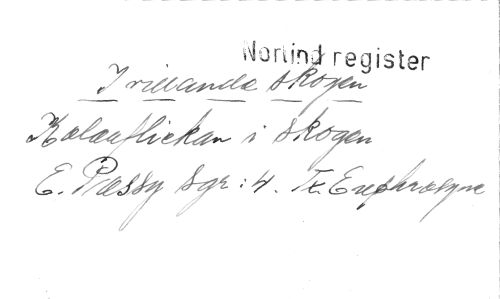 Norlind register
I rillande skogen
Kolaflickan i skogen
E. Pæssy sgr: 4. Tx. Euphrosyne